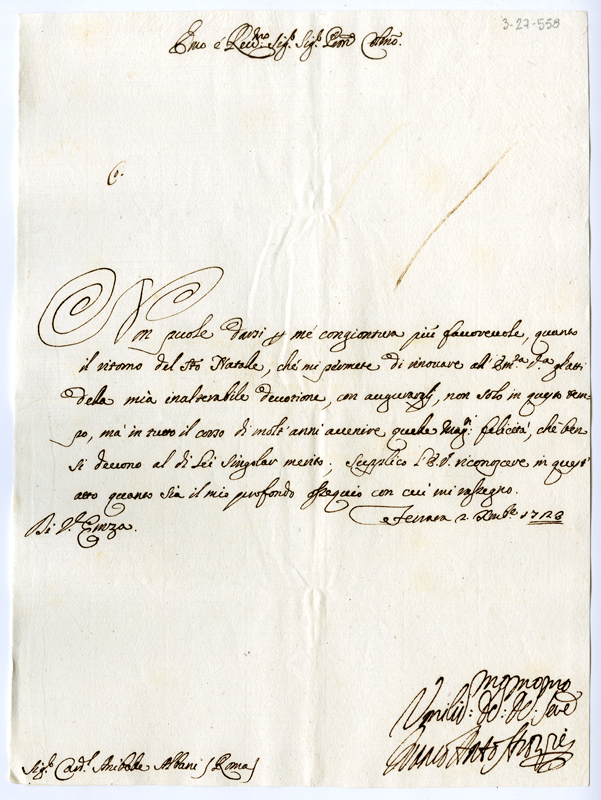 3-27-558
Emo é Revmo Sigr. Sigr. Pron Colmo.
Non puole darsi p mé congiontura più favorevole, quanto
il ritorno del Sto Natale, che mi permete di rinovare all' Emza Va gl'atti
della mia inalterabile devotione, con augurargli, non solo in questo tem-
po, mà in tutto il corso di molt'anni avenire quelle Magri: felicità, che ben
si devono al di Lei singolar merito; supplico l'E.V. riconoscere in quest'
atto quanto sia il mio profondo ossequio con cui mi rassegno.
Di Va Emza.
Ferrara 2. Xmbe 1723
Umilis: De: Ob: Serre
Anto Strozzi
Sigr Cardl Anibale Albani (Roma)